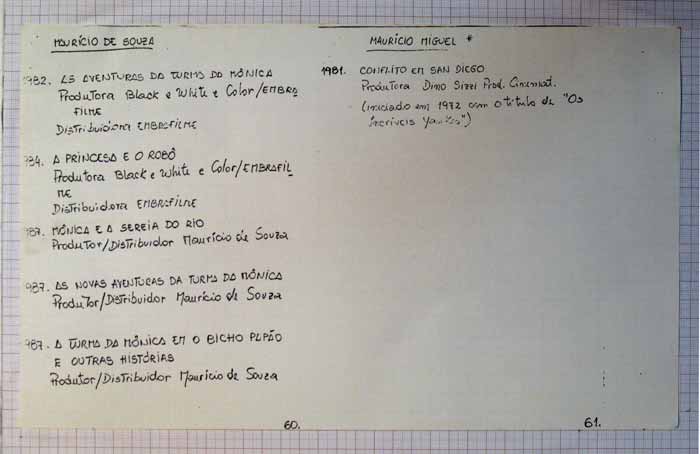 MAURÍCIO DE SOUZA
1982. AS AVENTURAS DA TURMA DA MÔNICA
Produtora Black e White e Color/EMBRA
FILME
Distribuidora EMBRAFILME
984. A PRINCESA E O ROBÔ
Produtora Black e White e Color/EMBRAFIL
ME
Distribuidora EMBRAFILME
987. MÔNICA E A SEREIA DO RIO
Produtor/Distribuidor Maurício de Souza
987. AS NOVAS AVENTURAS DA TURMA DA MÔNICA
Produtor/Distribuidor Maurício de Souza
987. A TURMA DA MÔNICA EM O BICHO PAPÃO
E OUTRAS HISTÓRIAS
Produtor/Distribuidor Maurício de Souza
60.
MAURÍCIO MIGUEL *
1981. CONFLITO EM SAN DIEGO
Produtora Dino Prod. Cinemat.
(iniciado em 1972 com o título de "Os
incríveis Yankes")
61.